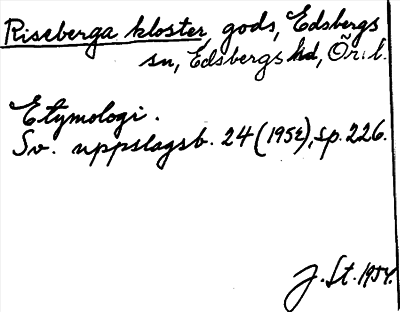 Riseberga kloster, gods, Edsbergs
sn, Edsbergs hd, Ör. l.
Etymologi.
Sv. uppslagsb. 24 (1952), sp. 226.
J. St. 1954.